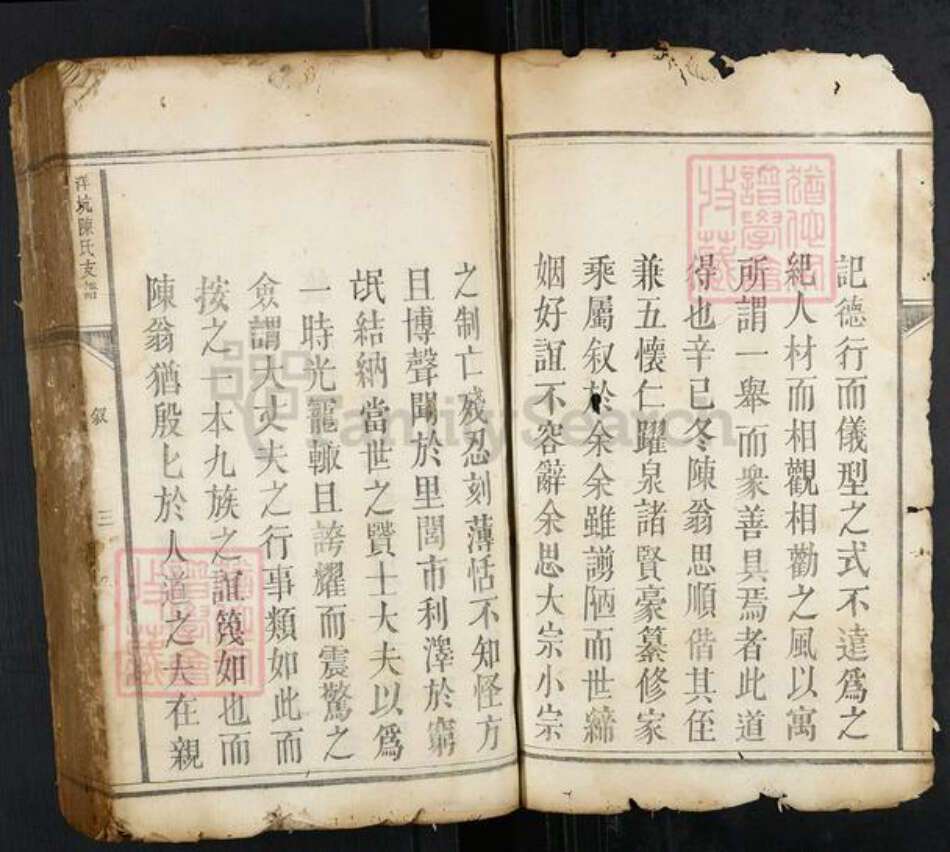 記德行而儀型之式不達為之
紀人材而相觀相勸之風以寓
所謂一舉而衆善具焉者此道
得也辛巳冬陳翁思順偕其侄
兼五懷仁躍泉諸賢豪纂修家
乘屬叙於余余雖謭陋而世締
姻好誼不容辭余思大宗小宗
之制亡殘忍刻薄恬不知怪方
且博聲聞於里閭市利澤於窮
氓結納當世之賢士大夫以為
一時光寵輙且誇耀而震驚之
僉謂大丈夫之行事類如此而
按之一本九族之誼篾如也而
陳翁猶殷匕於人道之大在親
洋坑陳氏支譜
叙
三
猶他
譜學會
收藏
FamilySearch